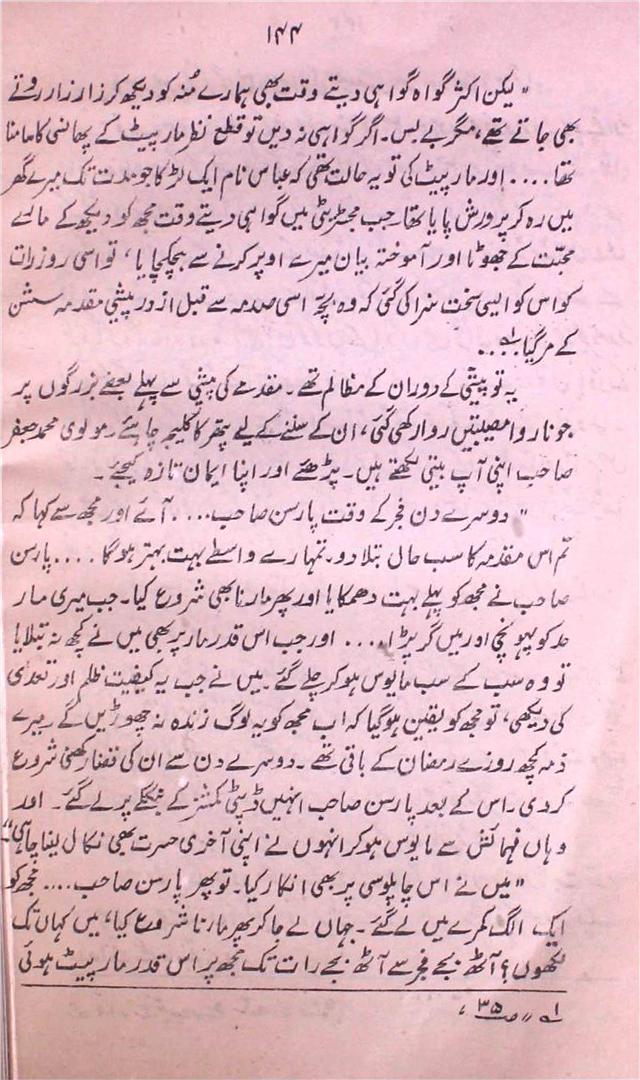 ۱۴۴
" لیکن اکثر گواہ گواہی دیتے وقت بھی ہمارے مُنہ کو دیکھ کر زار زار روتے
بھی جاتے تھے، مگر بے بس۔ اگر گواہی نہ دیں تو قطع نظر مار پیٹ کے پھانسی کا سامنا
تھا.... اور مار پیٹ کی تو یہ حالت تھی کہ عباس نام ایک لڑکا جو مدت تک میرے گھر
میں رہ کر پرورش پایا تھا، جب مجسٹریٹی میں گواہی دیتے وقت مجھ کو دیکھ کے مالے
محبّت کے جھوٹا اور آموختہ بیان میرے اوپر کرنے سے ہچکچایا، تو اسی روز رات
کو اس کو ایسی سخت سزا کی گئی کہ وہ بچّہ اسی صدمہ سے قبل از درپیشی مقدمہ سشن
کے مرگیا۔۱؎..
یہ تو پیشی کے دوران کے مظالم تھے۔ مقدمے کی پیشی سے پہلے بعضے بزرگوں پر
جو ناروا مصیبتیں روا رکھی گئی، ان کے سننے کے لیے پتھر کا کلیجہ چاہئیے۔ مولوی محمد جعفر
صاحب اپنی آپ بیتی لکھتے ہیں۔ پڑھئے اور اپنا ایمان تازہ کیجئے۔
" دوسرے دن فجر کے وقت پارسن صاحب.... آئے اور مجھ سے کہا کہ
تم اس مقدمہ کا سب حال بتلا دو، تمہارے واسطے بہت بہتر ہوگا.... پارسن
صاحب نے مجھ کو پہلے بہت دھمکایا اور پھر مارنا بھی شروع کیا۔ جب میری مار
حد کو پہونچی اور میں گر پڑا.... اور جب اس قدر مار پر بھی میں نے کچھ نہ بتلایا
تو وہ سب کے سب مایوس ہو کر چلے گئے۔ میں نے جب یہ کیفیت ظلم اور تعدّی
کی دیکھی، تو مجھ کو یقین ہوگیا کہ اب مجھ کو یہ لوگ زندہ نہ چھوڑیں گے۔ میرے
ذمہ کچھ روزے رمضان کے باقی تھے۔ دوسرے دن سے ان کی قضا رکھنی شروع
کردی۔ اس کے بعد پارسن صاحب انہیں ڈپٹی کمشنر کے بنگلے پر لے گئے۔ اور
وہاں فہمائش سے مایوس ہو کر انہوں نے اپنی آخری حسرت بھی نکال لینا چاہی"۔
" میں نے اس چاپلوسی پر بھی انکار کیا۔ تو پھر پارسن صاحب.... مجھ کو
ایک الگ کمرے میں لے گئے۔ جہاں لے جا کر پھر مارنا شروع کیا، میں کہاں تک
لکھوں؟ آٹھ بجے فجر سے آٹھ بجے رات تک مجھ پر اس قدر مار پیٹ ہوئی
۱؎ // ص ۳۵ ،